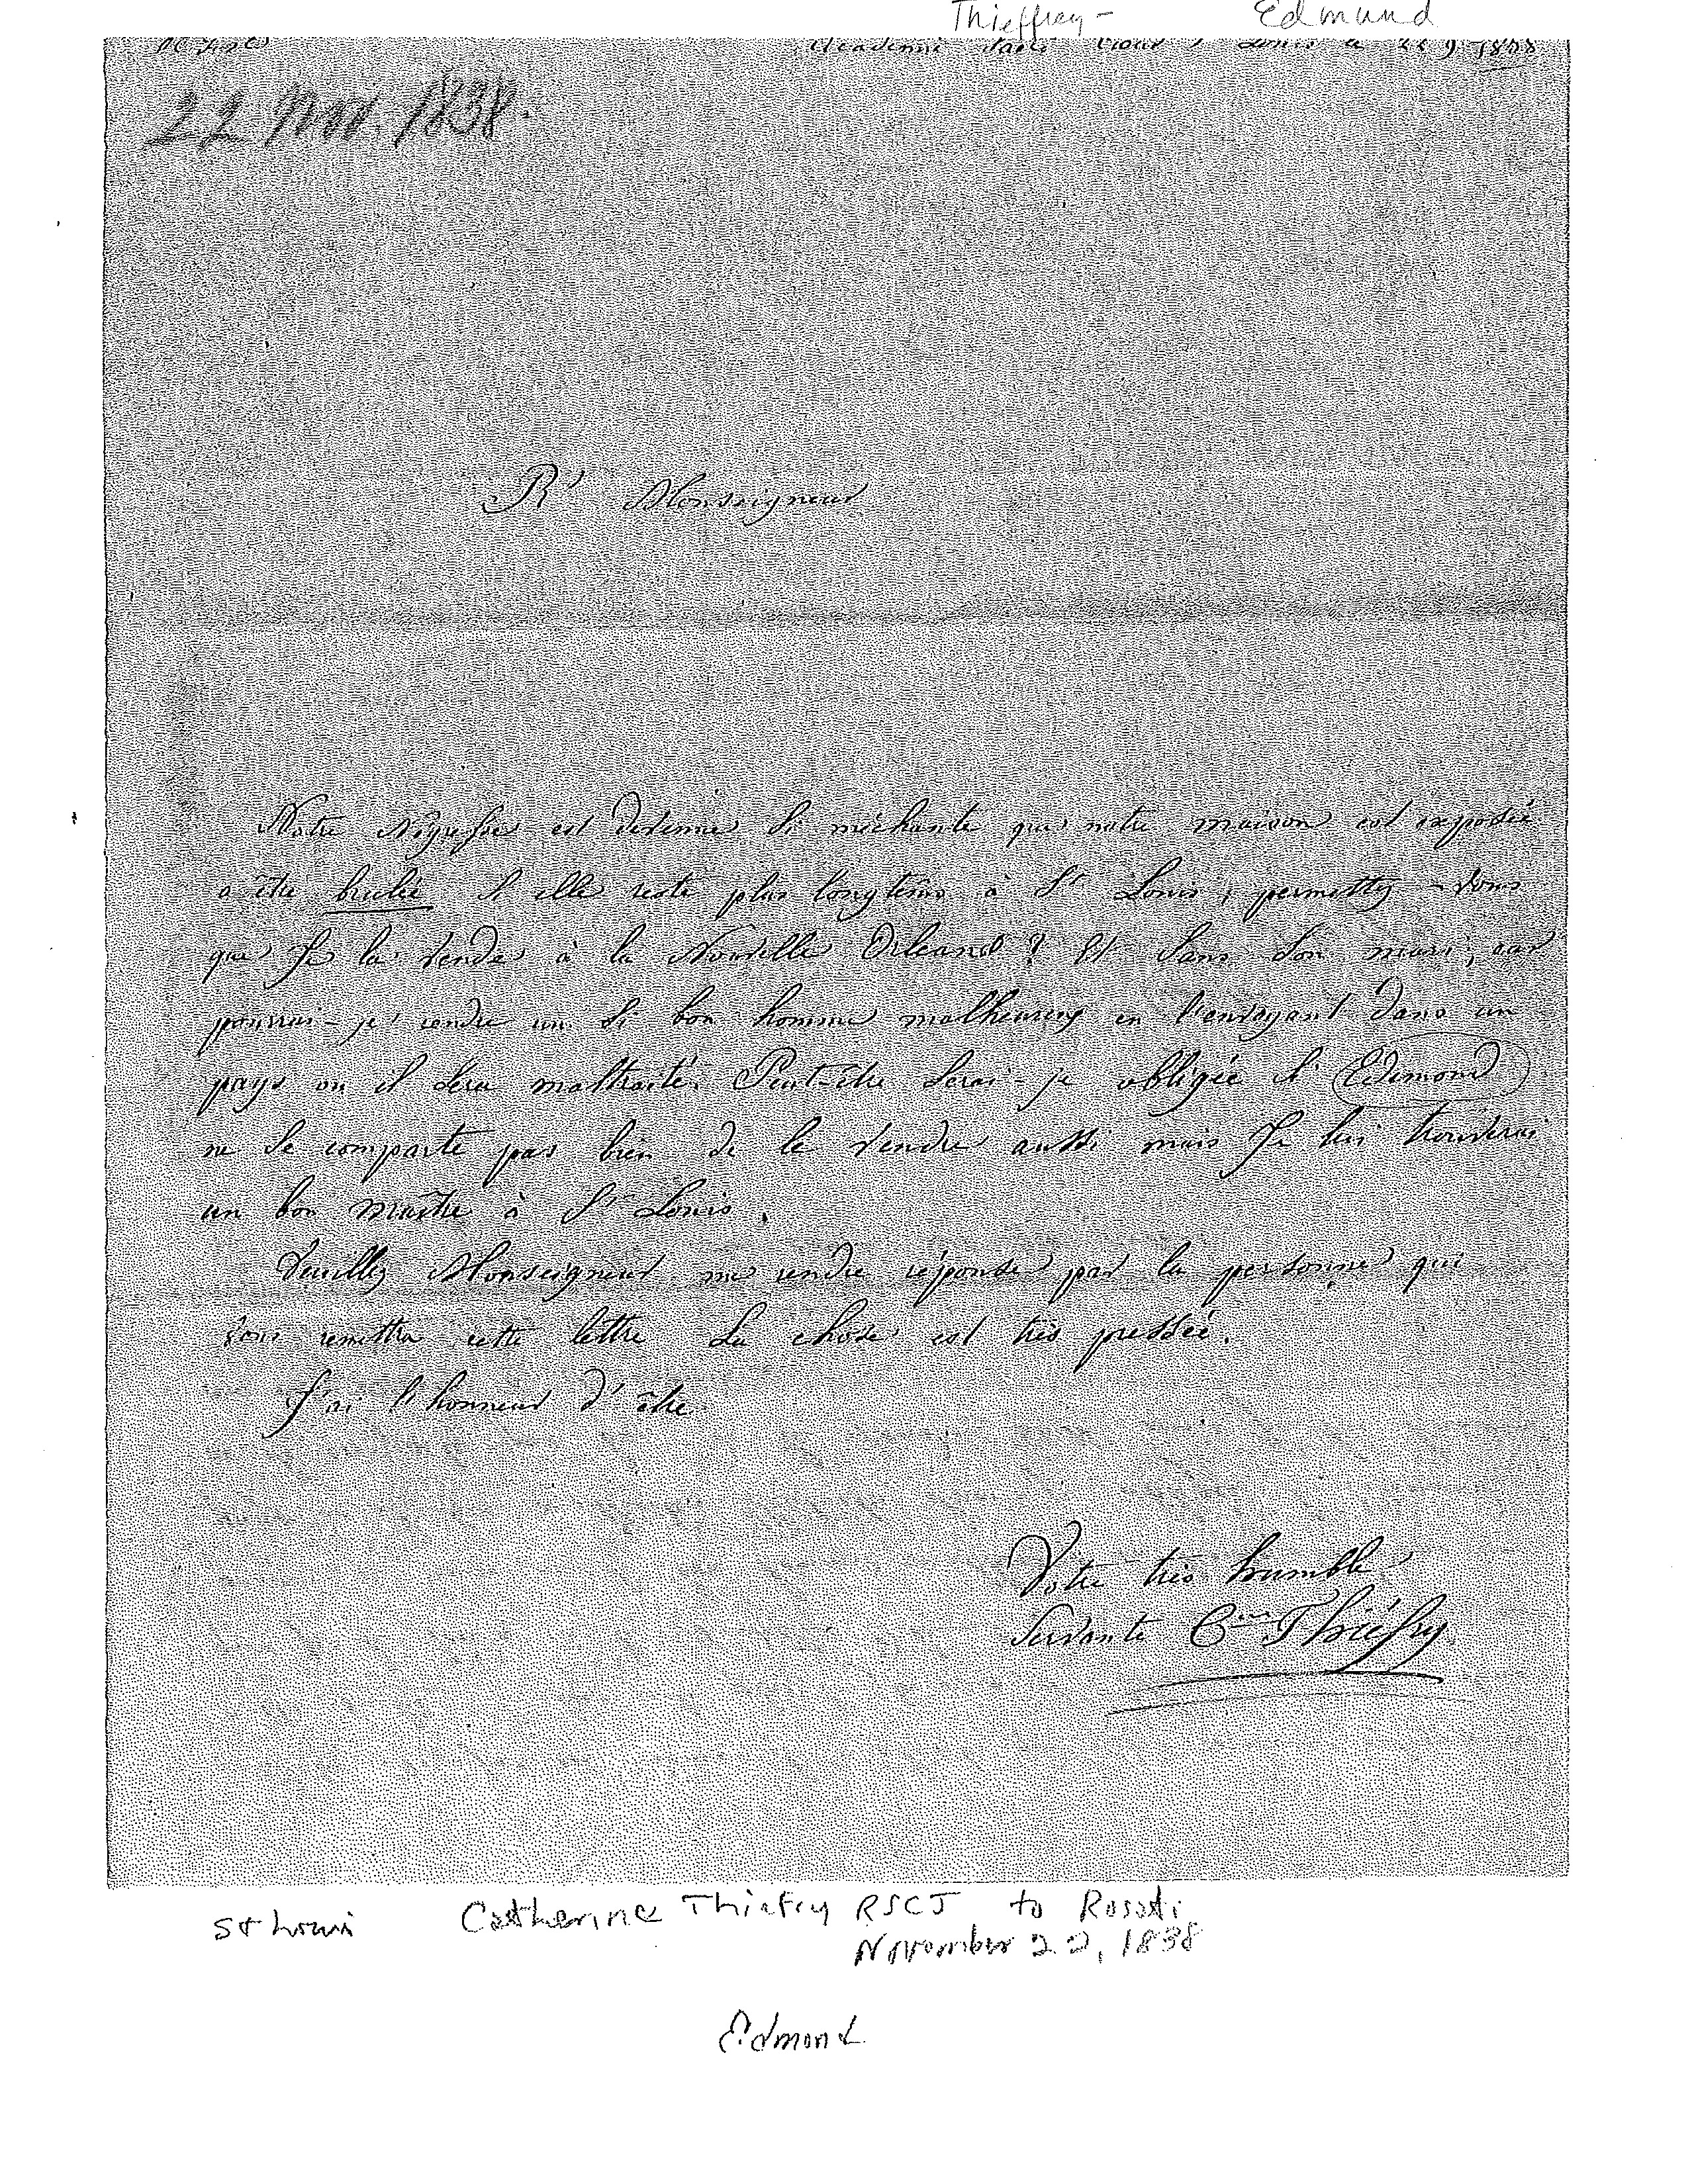 Thieffrey - Edmund
Academie Sacré Coeur St Louis le 22 9. 1838
22 Nov. 1838.
Rd Monseigneur
Notre Négresse est devenue si méchante que notre maison est exposée
a être brulée si elle reste plus longtems à St Louis, permettez-vous
que Je la vende à la Nouvelle Orleans? Et sans son mari, car
pourrai-je rendre un si bon homme malheureux en l'envoyant dans un
pays ou il sera maltraité. Peut-être serai-je obligée si Edmond
ne se comporte pas bien de le vendre aussi mais Je lui trouverai
un bon maître à St Louis.
Veuillez Monseigneur me rendre réponse par la personne qui
vous remettra cette lettre La chose est très pressée.
J'ai l'honneur d'être
Votre très humble
Servante Cine Thiéfry
St Louis Catherine Thiefry RSCJ to Rosati
November 22, 1838
Edmond